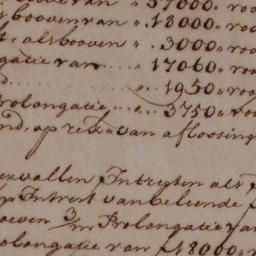 van " 37000. roo
booven van " 18000. roo
als booven " 3000 " roo
gatie van " 17060 " roo
" 1950 " roo
Prolongatie " 3750 " roo
op rek: van aflossing
vervallen Intresten als
Intrest van beleende
booven 3/m Prolongatie van
olongatie van ƒ 18000